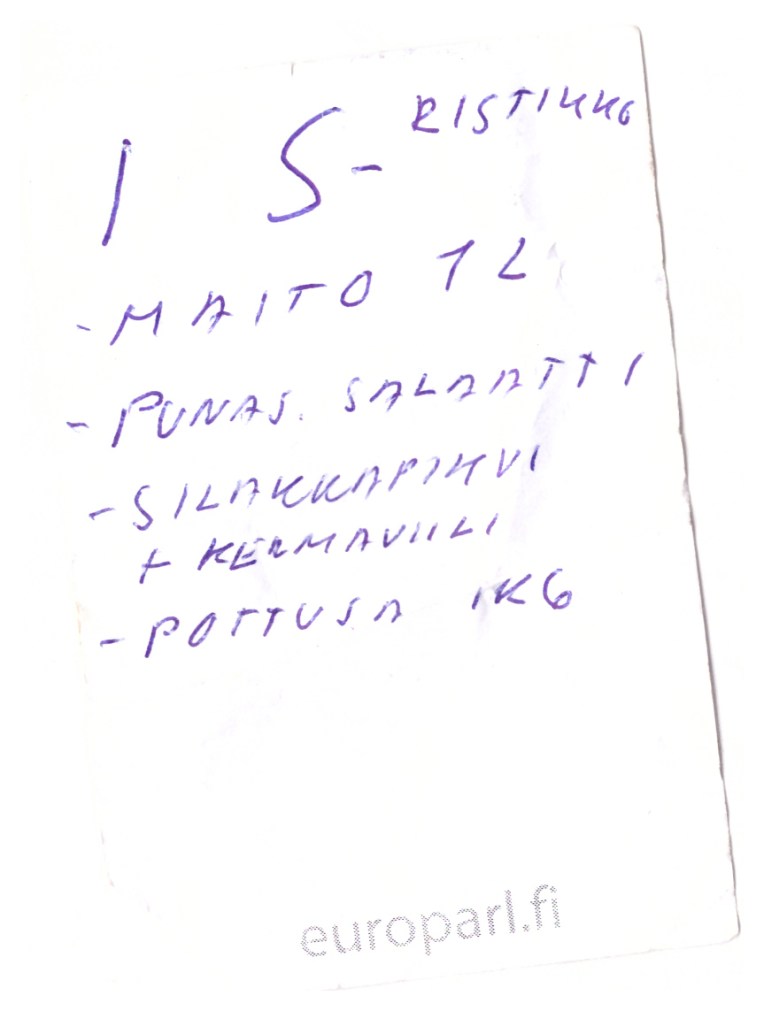 1 S- RISTIKKO
- MAITO 1 L
- PUNAS. SALAATTI
- SILAKKAPIHVI
+ KERMAVIILI
- POTTUJA 1KG
europarl.fi